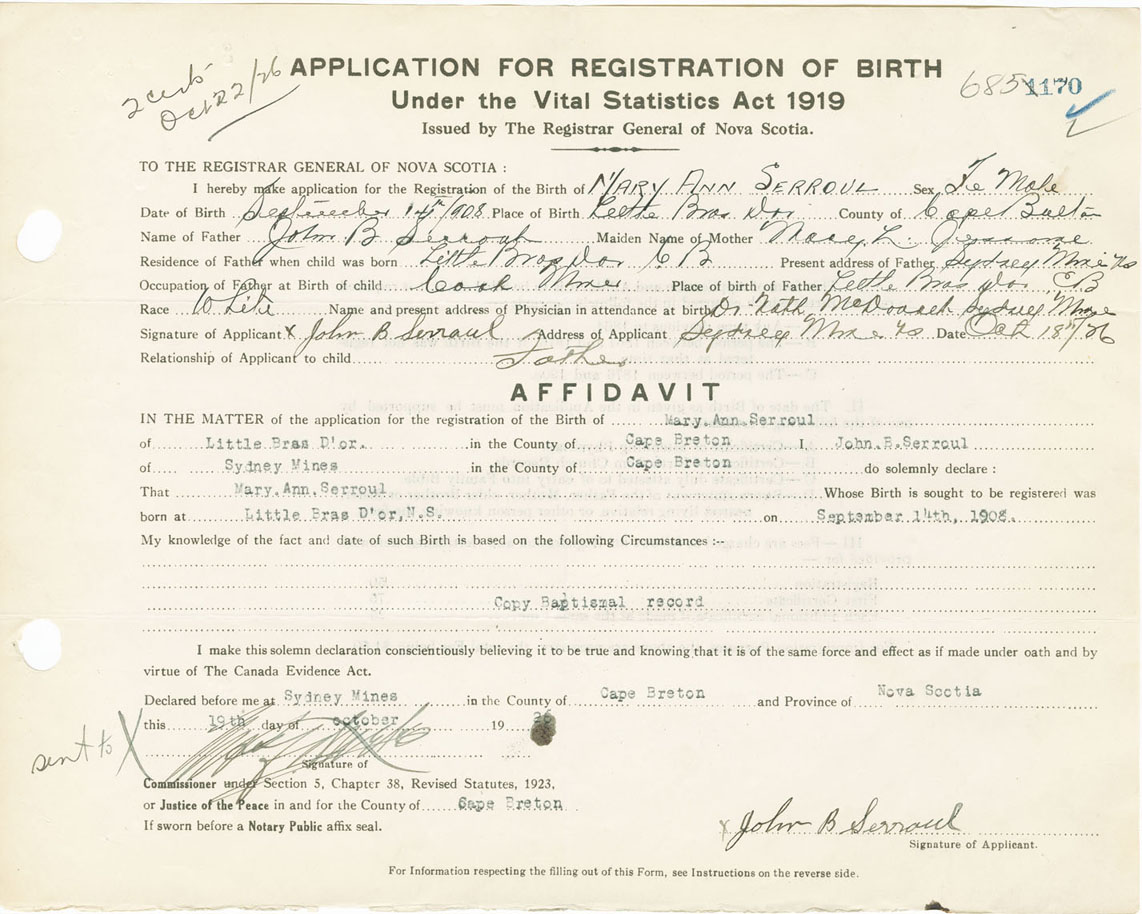 2 certs
Oct 22/26
APPLICATION FOR REGISTRATION OF BIRTH
685 1170
Under the Vital Statistics Act 1919
Issued by The Registrar General of Nova Scotia.
TO THE REGISTRAR GENERAL OF NOVA SCOTIA :
I hereby make application for the Registration of the Birth of MARY ANN SERROUL Sex Fe Male
Date of Birth September 14th/1908 Place of Birth Little Bras Dor County of Cape Breton
Name of Father John B Serroul Maiden Name of Mother Mary L. Jessome
Residence of Father when child was born Little Bras Dor C B Present address of Father Sydney Mines
Occupation of Father at Birth of child Coal Miner Place of birth of Father Little Bras Dor CB
Race White Name and present address of Physician in attendance at birth Dr Sydney Mines
Signature of Applicant X John B Serroul Address of Applicant Sydney Mines Date Oct 18th/26
Relationship of Applicant to child Father
AFFIDAVIT
IN THE MATTER of the application for the registration of the Birth of Mary.Ann.Serroul
of Little Bras D'or. in the County of Cape Breton I, John.B.Serroul
of Sydney Mines in the County of Cape Breton do solemnly declare :
That Mary.Ann.Serroul Whose Birth is sought to be registered was
born at Little Bras D'or,N.S. on September 14th, 1908.
My knowledge of the fact and date of such Birth is based on the following Circumstances :--
Copy Baptismal record
I make this solemn declaration conscientiously believing it to be true and knowing that it is of the same force and effect as if made under oath and by
virtue of The Canada Evidence Act.
Declared before me at Sydney Mines in the County of Cape Breton and Province of Nova Scotia
this 19th day of october 19 26
sent to X
Signature of
Commissioner under Section 5, Chapter 38, Revised Statutes, 1923,
or Justice of the Peace in and for the County of Cape Breton
If sworn before a Notary Public affix seal.
X John B Serroul
Signature of Applicant.
For Information respecting the filling out of this Form, see Instructions on the reverse side.